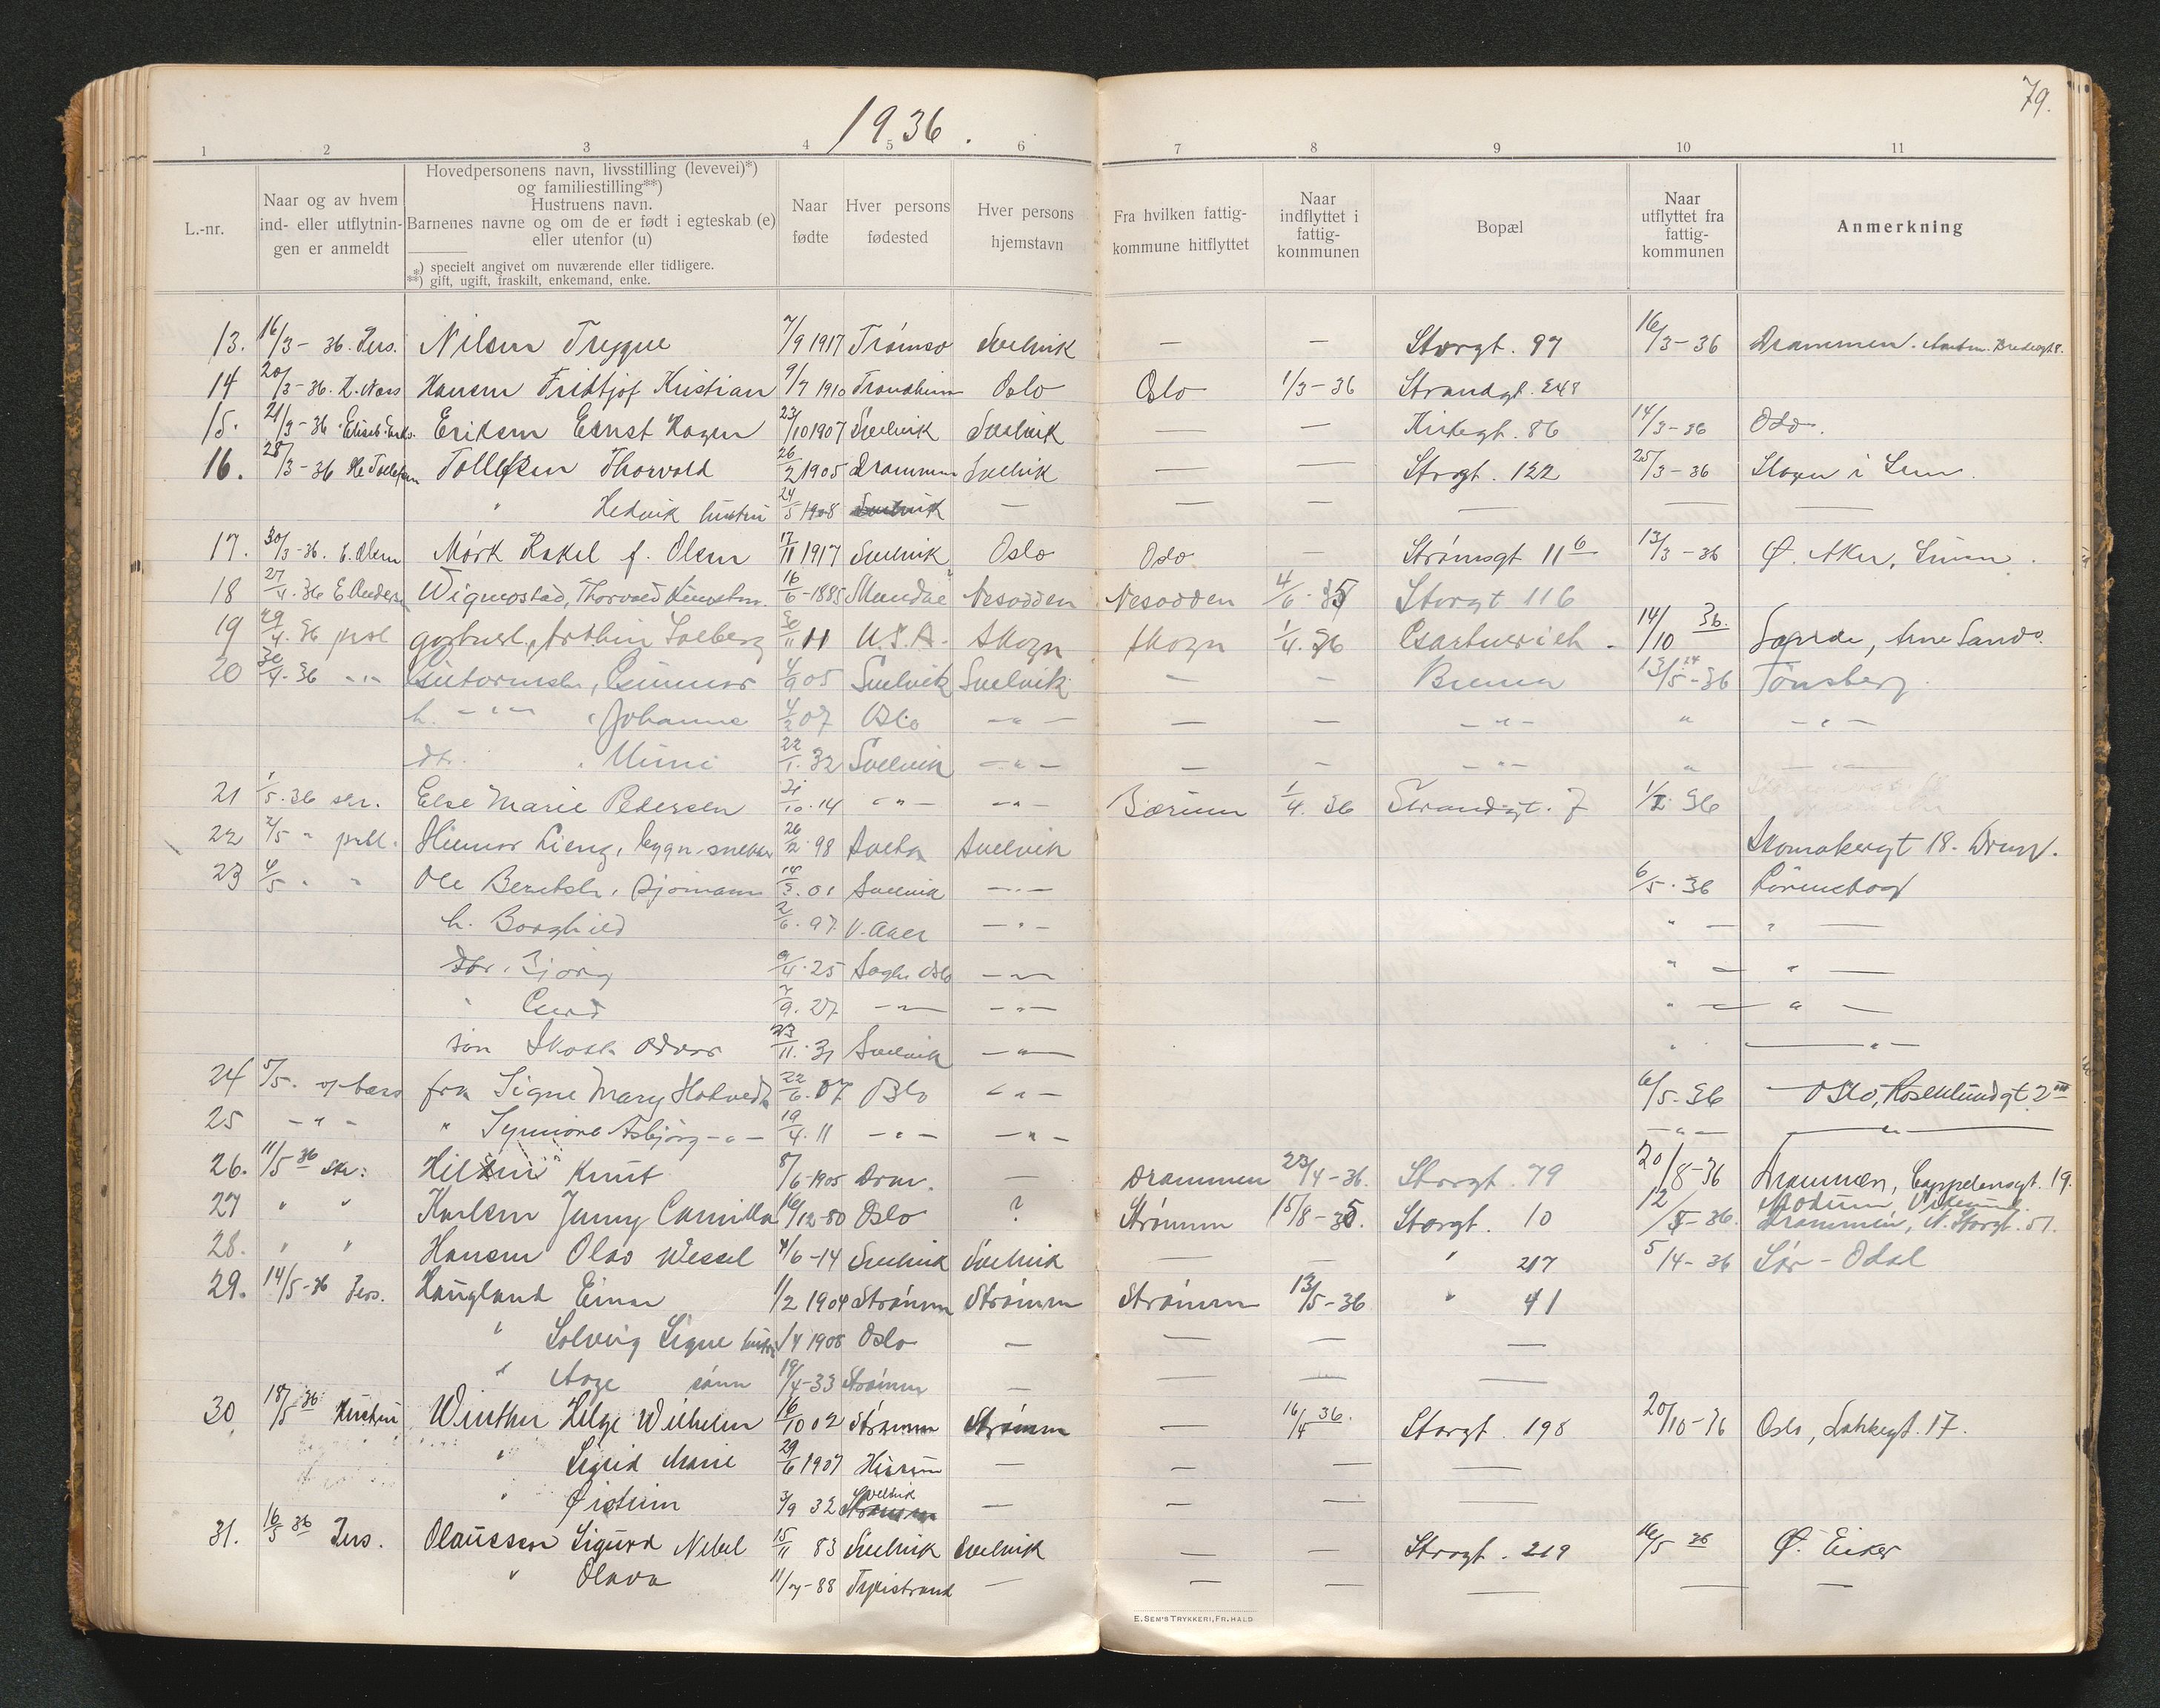 1936.
79.
1 2 3 4 5 6 7 8 9 10 11
L.-nr.
Naar og av hvem ind- eller utflytningen er anmeldt
Hovedpersonens navn, livsstilling (levevei)*)
og familiestilling**)
Hustruens navn.
Barnenes navne og om de er født i egteskab (e)
eller utenfor (u)
*) specielt angivet om nuværende eller tidligere.
**) gift, ugift, fraskilt, enkemand, enke.
Naar fødte
Hver persons fødested
Hver persons hjemstavn
Fra hvilken fattigkommune hitflyttet
Naar indflyttet i fattigkommunen
Bopæl
Naar utflyttet fra fattigkommunen
Anmerkning
13. 16/3-36. Nilsen Trygve 7/9 1917 Tromsø Svelvik — — Storgt. 97 16/3-36 Drammen.
14 20/3-36. Hansen Fridtjof Kristian 9/7 1910 Trondheim Oslo Oslo 1/3-36 Strandgt. 248
15. 21/3-36 Eriksen Ernst Hagen 23/10 1907 Svelvik Svelvik — — Kirkegt. 86 14/3-36 Oslo.
16. 28/3-36 Tollefsen Thorvald 26/2 1905 Drammen Svelvik — — Storgt. 122 25/3-36 Skoger i Lier.
" Hedvik hustru 24/5 1908 Svelvik — — — — — —
17. 30/3-36. E. Olsen Mørk Rakel f. Olsen 17/11 1917 Svelvik Oslo Oslo — Strømsgt 11 b 13/3-36 Ø. Aker,
18 27/4.36 E Anders Wigmostad, Thorvald 16/6-1885 Mandal Nesodden Nesodden 4/6-35 Storgt 116
19 29/4.36 Solberg 30/11 11 U.S.A. Skoger Skoger 1/4.36 14/10 36.
20 30/4-36 -"- Guttormsen, Gunnar 4/9 05 Svelvik Svelvik — — Bruna 13/5-36 Tønsberg.
h. -"- , Johanne 4/2 07 Oslo -"- — — -"- " -"-
dtr. " Mimi 22/1.32 Svelvik -"- — — -"- " -"-
21 1/5.36 Else Marie Pedersen 31/10.14 -"- -"- Bærum 1/4.36 Strandgt. 7
22 2/5 " Hilmar Lieng, bygn.snekker 26/2.98 Svelvik Skomakergt 18. Drm.
23 4/5 " " Ole Berntsen, sjømann 14/3.01 Svelvik -"- 6/5.36
h. Borghild 2/6.97 V. Aker -"- " — " —
dtr. Bjørg 9/4.25 Oslo -"- " — " —
" Gerd 7/9.27 -"- -"- " — " —
søn Odvar 23/11.31 Svelvik -"- " — " —
24 5/5. frk Signe Mary Hotvedt 22/6.07 Oslo -"- 6/5.36 Oslo, Rosenlundgt. 2
25 -"- " Synnøve Asbjørg -"- 19/4.11 -"- -"- -"- — " —
26. 11/5 36 Knut 8/6-1905 Dram. — Drammen 23/4-36. Storgt. 79 20/8-36 Drammen, Cappelensgt. 19.
27 " " Karlsen Jenny Camilla 16/12-80 Oslo ? Strømm 15/8-35. Storgt. 10 12/5-36. Modum, Vikersund.
Drammen, N. Storgt. 51.
28. " " Hansen Olav Wessel 4/6-14 Svelvik Svelvik — — " 217 5/4-36 Sør-Odal
29. 14/5-36 Haugland Einar 1/2 1904 Strømm Strømm Strømm 13/5-36 " 41
" Solveig Signe hustru 1/4 1908 Oslo — — — —
" Aage sønn 19/4-33 Strømm — — — —
30 18/5 36 Winther Helge Wilhelm 16/10 02 Strømm Strømm — 16/4 36. Storgt. 198 20/10-36 Oslo, Lakkegt. 17.
" Sigrid Marie 29/6 1907 Hurum — — — —
" Øistein 3/9 32 Svelvik Strømm — — — —
31. 16/5 36 Olaussen Sigurd Nebel 15/11 83 Svelvik Svelvik — — Storgt. 219 16/5 36 Ø. Eiker
" Olava 11/7-88 — — — — — —
E. SEM'S TRYKKERI, FR.HALD